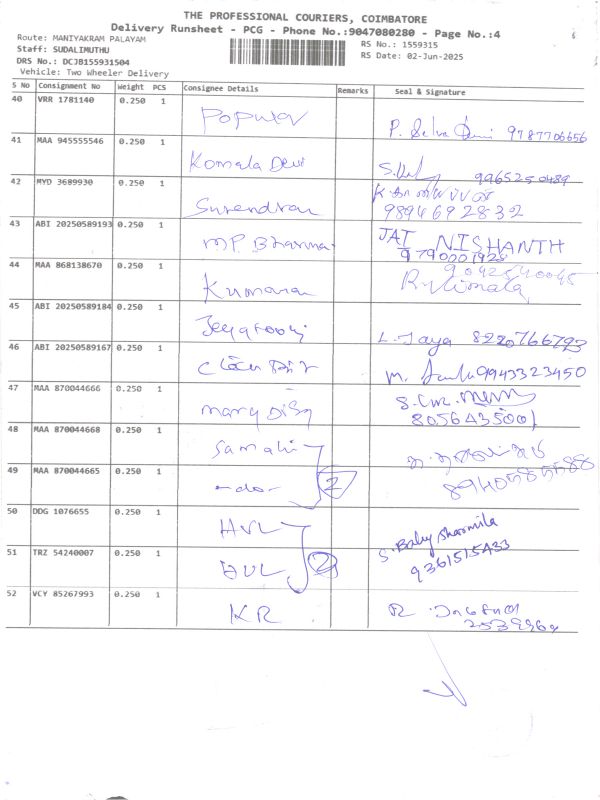 THE PROFESSIONAL COURIERS, COIMBATORE
Delivery Runsheet - PCG - Phone No.:9047080280 - Page No.:4
Route: MANIYAKRAM PALAYAM
RS No.: 1559315
Staff: SUDALIMUTHU
RS Date: 02-Jun-2025
DRS No.: DCJB155931504
Vehicle: Two Wheeler Delivery
S No Consignment No Weight PCS Consignee Details Remarks Seal & Signature
40 VRR 1781140 0.250 1 Popular P. Selva 9787706656
41 MAA 945555546 0.250 1 Komala Devi 9965250489
42 MYD 3689930 0.250 1 Surendran 9894692832
43 ABI 20250589193 0.250 1 M.P. JAI NISHANTH
9790001928
44 MAA 868138670 0.250 1 Kumaran 9042540045
R. Vimala
45 ABI 20250589184 0.250 1 L. Jaya 8220766793
46 ABI 20250589167 0.250 1 M. 9943323450
47 MAA 870044666 0.250 1 Mary
8056435001
48 MAA 870044668 0.250 1
49 MAA 870044665 0.250 1 -do- 2
50 DDG 1076655 0.250 1 HVL S. Baby Sharmila
9361515433
51 TRZ 54240007 0.250 1 HVL 2
52 VCY 85267993 0.250 1 KR R.